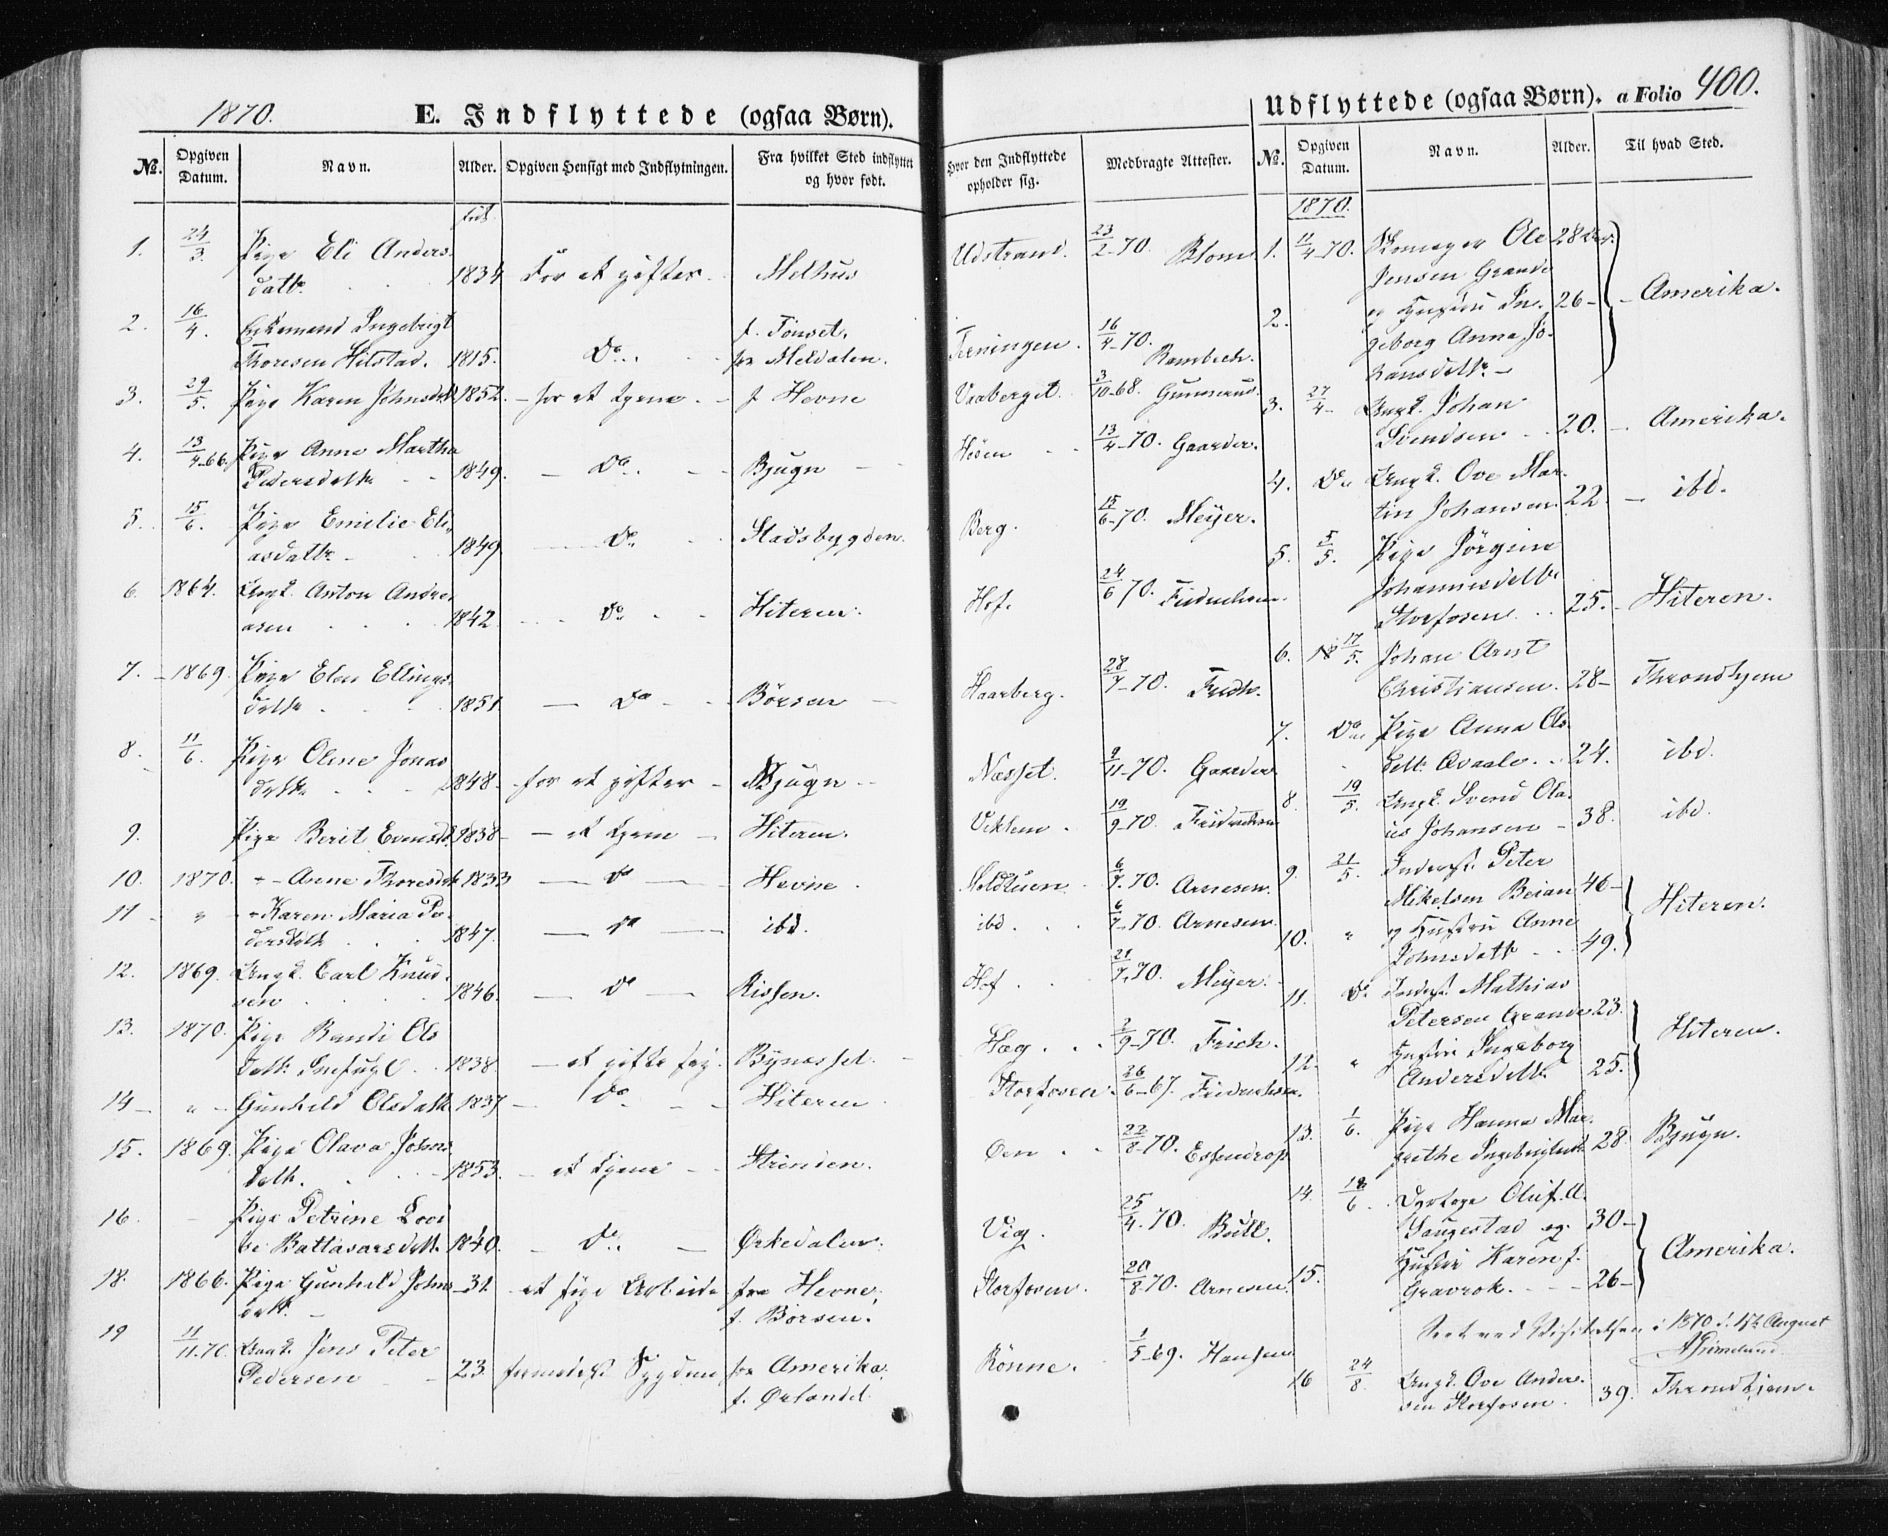 1870.
E. Indflyttede (ogsaa Børn).
No.
Opgiven Datum.
Navn.
Alder.
Opgiven Hensigt med Indflytningen.
Fra hvilket Sted indflyttet og hvor født.
Hvor den Indflyttede opholder sig.
Medbragte Attester.
1. 24/3. Pige Eli Anders-
datt. 1834 For at giftes. Melhus Udstrand. 23/2-70. Blom
2. 16/4. Enkemand Ingebrigt f. Tønset,
Thoresen Hilstad. 1815. Do. fra Meldalen. Terningen. 16/4-70. Rambech.
3. 29/5. Pige Karen Johnsdtt. 1852. - for at tjene - f Hevne Vaaberget. 3/10-68. Gunnerus.
4. 13/4-66. Pige Anne Martha
Pedersdatter 1849. - Do. Bjugn Høsen 13/4-70. Gaarder.
5. 15/6. Pige Emilie Eli-
asdattr. 1849. Do. Stadsbygden. Berg. 15/6-70. Meÿer.
6. 1864. Ungk. Anton Andre-
asen 1842 Do. Hiteren. Hof. 24/6 70.
7. 1869. Pige Elen Ellings-
dattr. 1851 - Do Børsen Haarberg. 28/7-70. Frich.
8. 11/6. Pige Oline Jonas
dattr. 1848. for at giftes - Bjugn Næsset. 9/11-70. Gaarder
9. Pige Berit 1838 - at tjene - Hiteren. Viklem. 19/9-70.
10. 1870. " - Anne Thoresdtr 1833 - Do - Hevne. 6/7-70. Arnesen.
11 - " - Karen Maria Pe-
dersdatt. 1847. - Do - ibd. ibd. 6/7-70 Arnesen.
12. 1869. Ungk. Carl Knud-
sen 1846. - Do - Rissen. Hof 21/7-70. Meÿer.
13. 1870. Pige Randi Ols
datt. 1838 - at gifte sig. Bynæsset. Hæg. 2/9-70. Frich.
14 - " - Gunhild Olsdatt. 1837 - Do - Hiteren Storfosen. 26/6-67.
15. 1869. Pige Olava Johns
datt. 1853. - at tjene - Strinden. Øen 22/8-70. Essendrop
16. - Pige Petrine Lovi
se Baltasarsdatt. 1840. - Do. - Ørkedalen. Vig. 25/4-70. Bull.
18. 1866. Pige Gunhild Johns 31. at søge Arbeide fra Hevne, Storfosen. 20/8-70. Arnesen.
datt. f. Børsen.
19 11/11-70. Ungk. Jens Peter
Pedersen 23. formedelst Sygdom fra Amerika, Rønne. 1/5-69. Hansen
f. Ørlandet.
Udflyttede (ogsaa Børn). a Folio 400.
No.
Opgiven Datum.
Navn.
Alder.
Til hvad Sted.
1870.
1. 11/4-70. Skomager Ole 28
Jensen Grande
2. og Hustru In- 26 - Amerika.
geborg Anna Jo-
hansdattr. -
3. 27/4- Ungk. Johan
Svendsen 20. - Amerika.
4. Do Ungk. Ove Mar-
tin Johansen. 22 - ibd.
5. 5/5. Pige Jørgine
Johannesdattr.
Storfosen 25. - Hiteren.
6. 17/5. Johan Arnt
Christiansen. 28 - Throndhjem
7. Do Pige Anna Ols
datt. 24. ibd.
8. 19/5. Ungk. Svend Ola-
us Johansen - 38. ibd.
9. 21/5. Inderst. Peter
Mikelsen Beian 46 -
10. " og Hustru Anne Hiteren.
Johnsdatt. 49.
11. Do. Inderst. Mathias
Petersen Grande 23.
12. " Hustru Ingeborg Hiteren.
Andersdattr. 25.
13. 1/6. Pige Hanna Mar-
grethe Ingebrigtsdt 28. Bjugn.
14. 18/6. Oluf A.
Saugestad og 30 -
15. Hustru Karen f. Amerika.
Gravrok. 26 -
Seet ved Visitatsen i 1870 d. 17de August
Grimelund
16 24/8. Ungk. Ove Ander-
sen Storfosen. 39. Throndhjem.